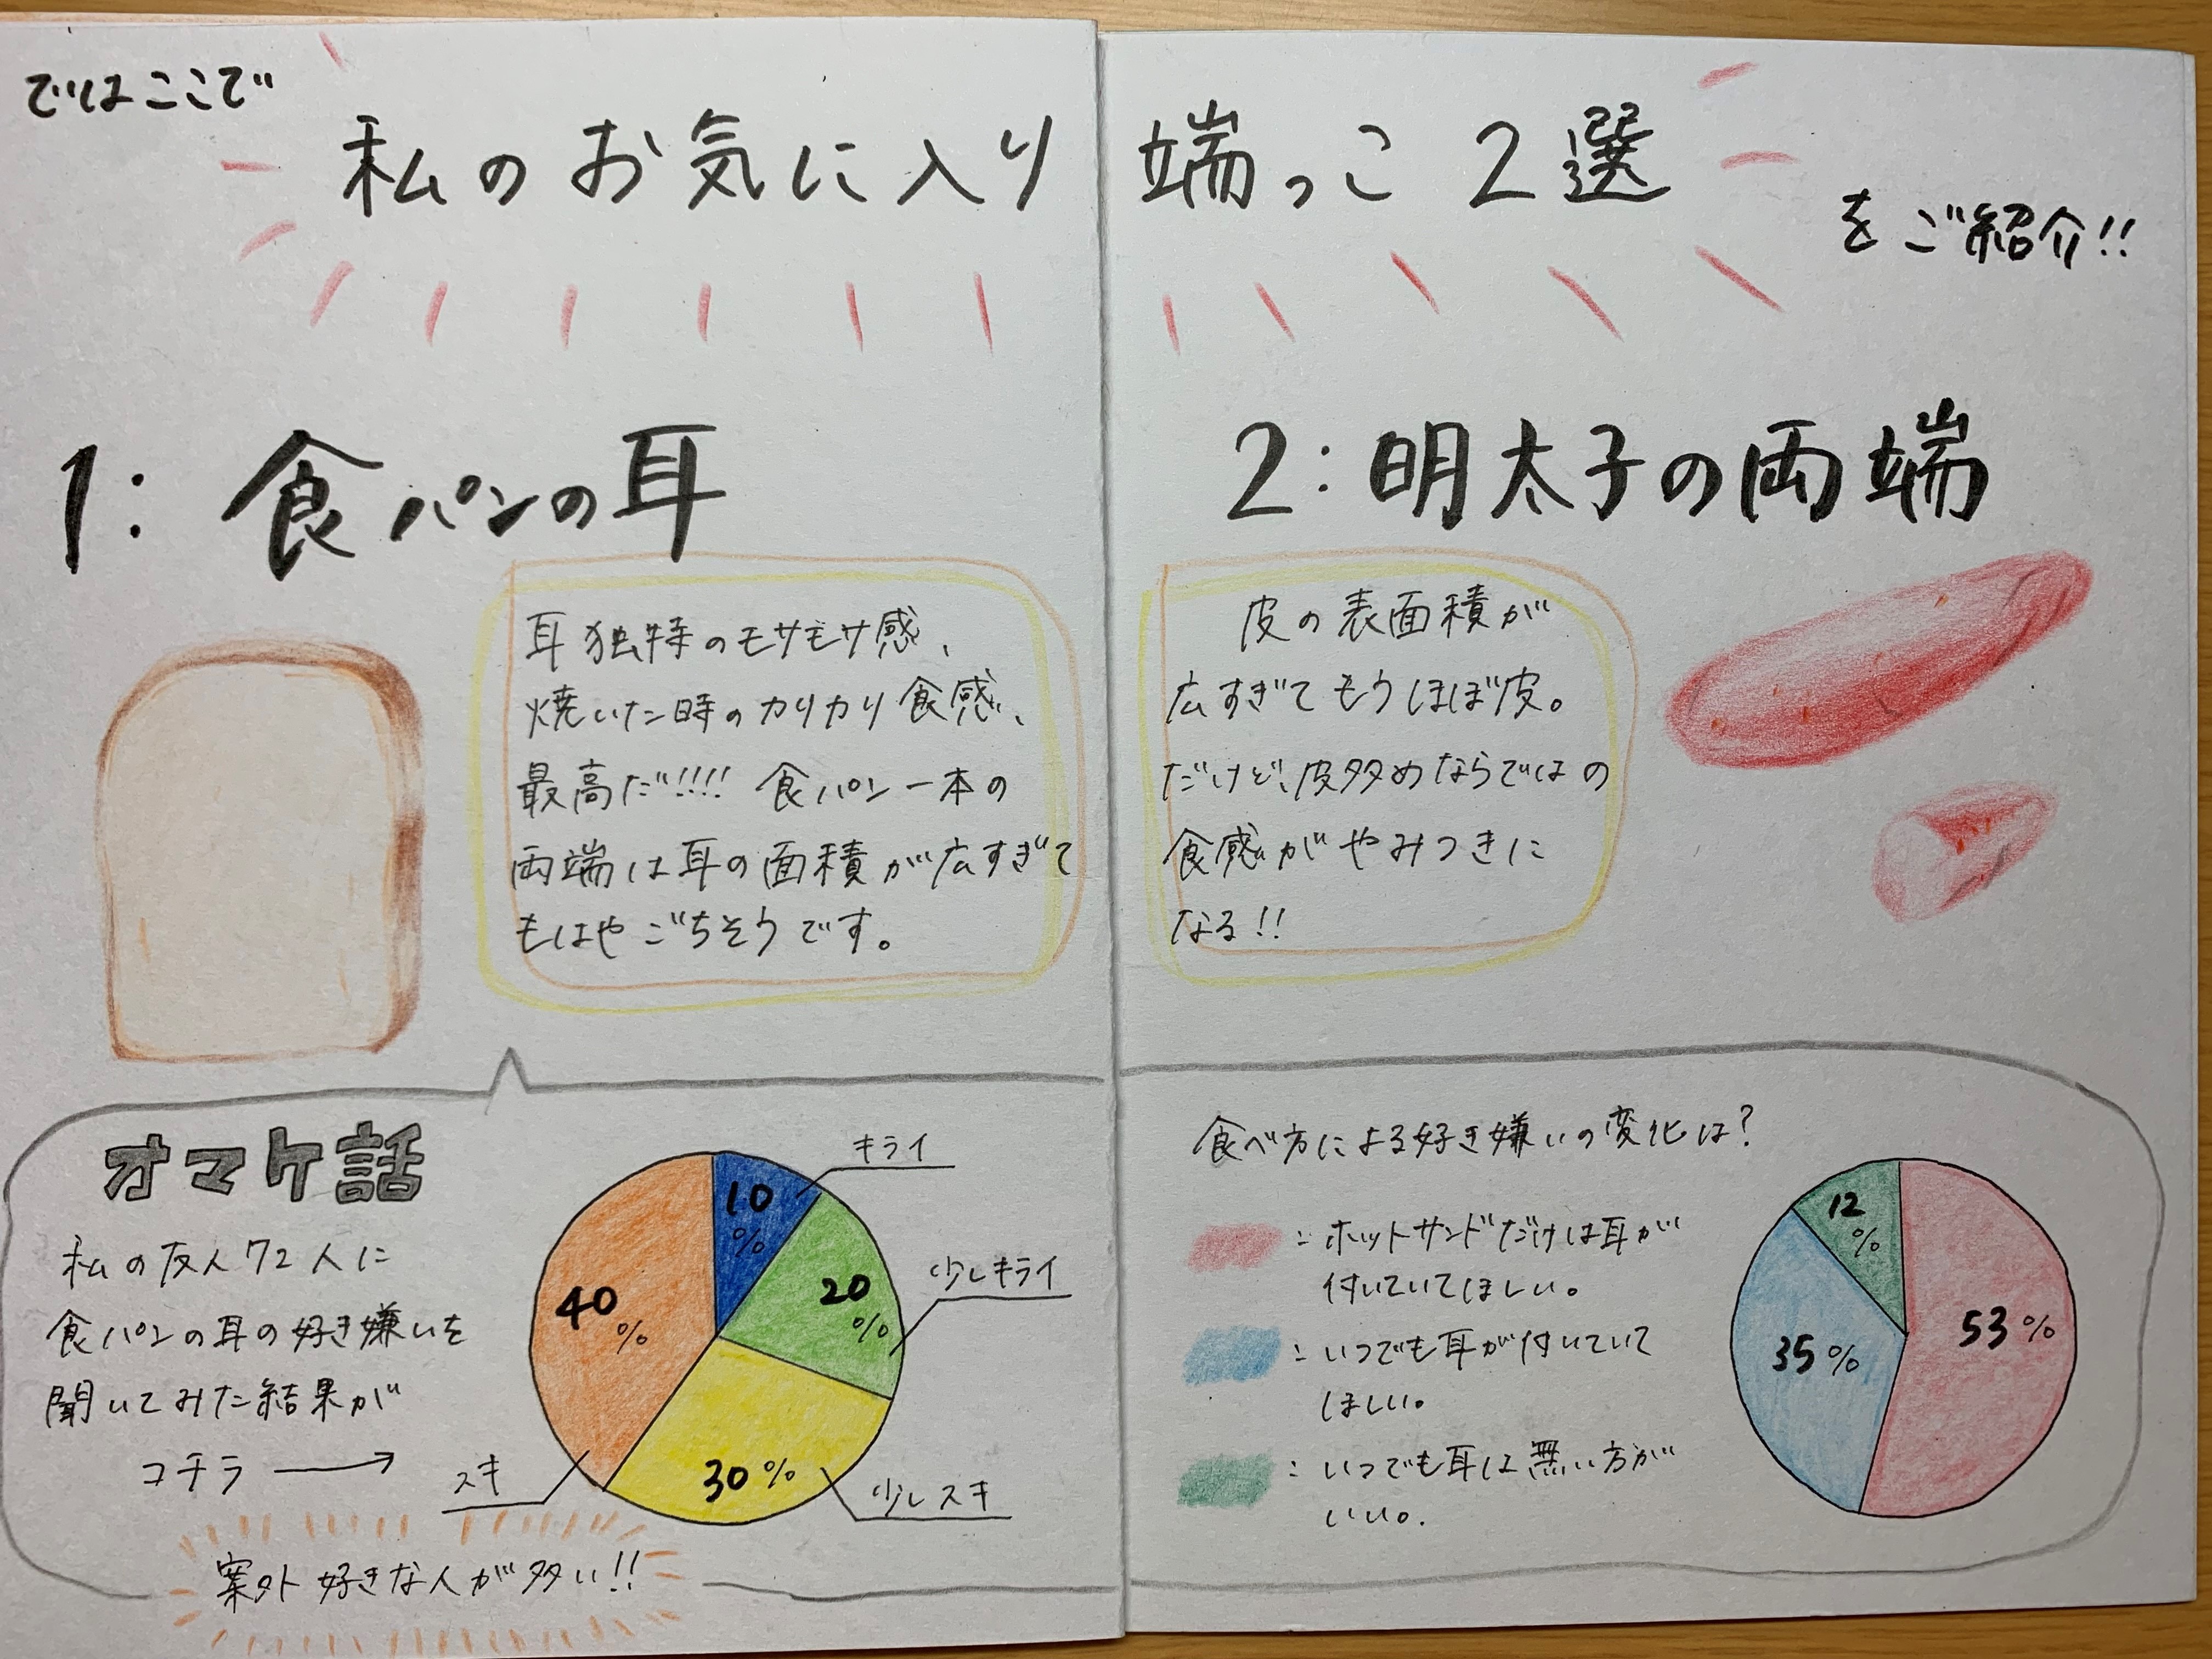 ではここで
私のお気に入り 端っこ 2選
をご紹介!!
1: 食パンの耳
耳独特のモサモサ感、
焼いた時のカリカリ食感、
最高だ!!!! 食パン一本の
両端は耳の面積が広すぎて
もはやごちそうです。
2: 明太子の両端
皮の表面積が
広すぎてもうほぼ皮。
だけど、皮多めならではの
食感がやみつきに
なる!!
オマケ話
私の友人72人に
食パンの耳の好き嫌いを
聞いてみた結果が
コチラ →
キライ
10%
少しキライ
20%
少しスキ
30%
スキ
40%
案外好きな人が多い!!
食べ方による好き嫌いの変化は?
: ホットサンドだけは耳が
付いていてほしい。
: いつでも耳が付いていて
ほしい。
: いつでも耳は無い方が
いい。
12%
35%
53%